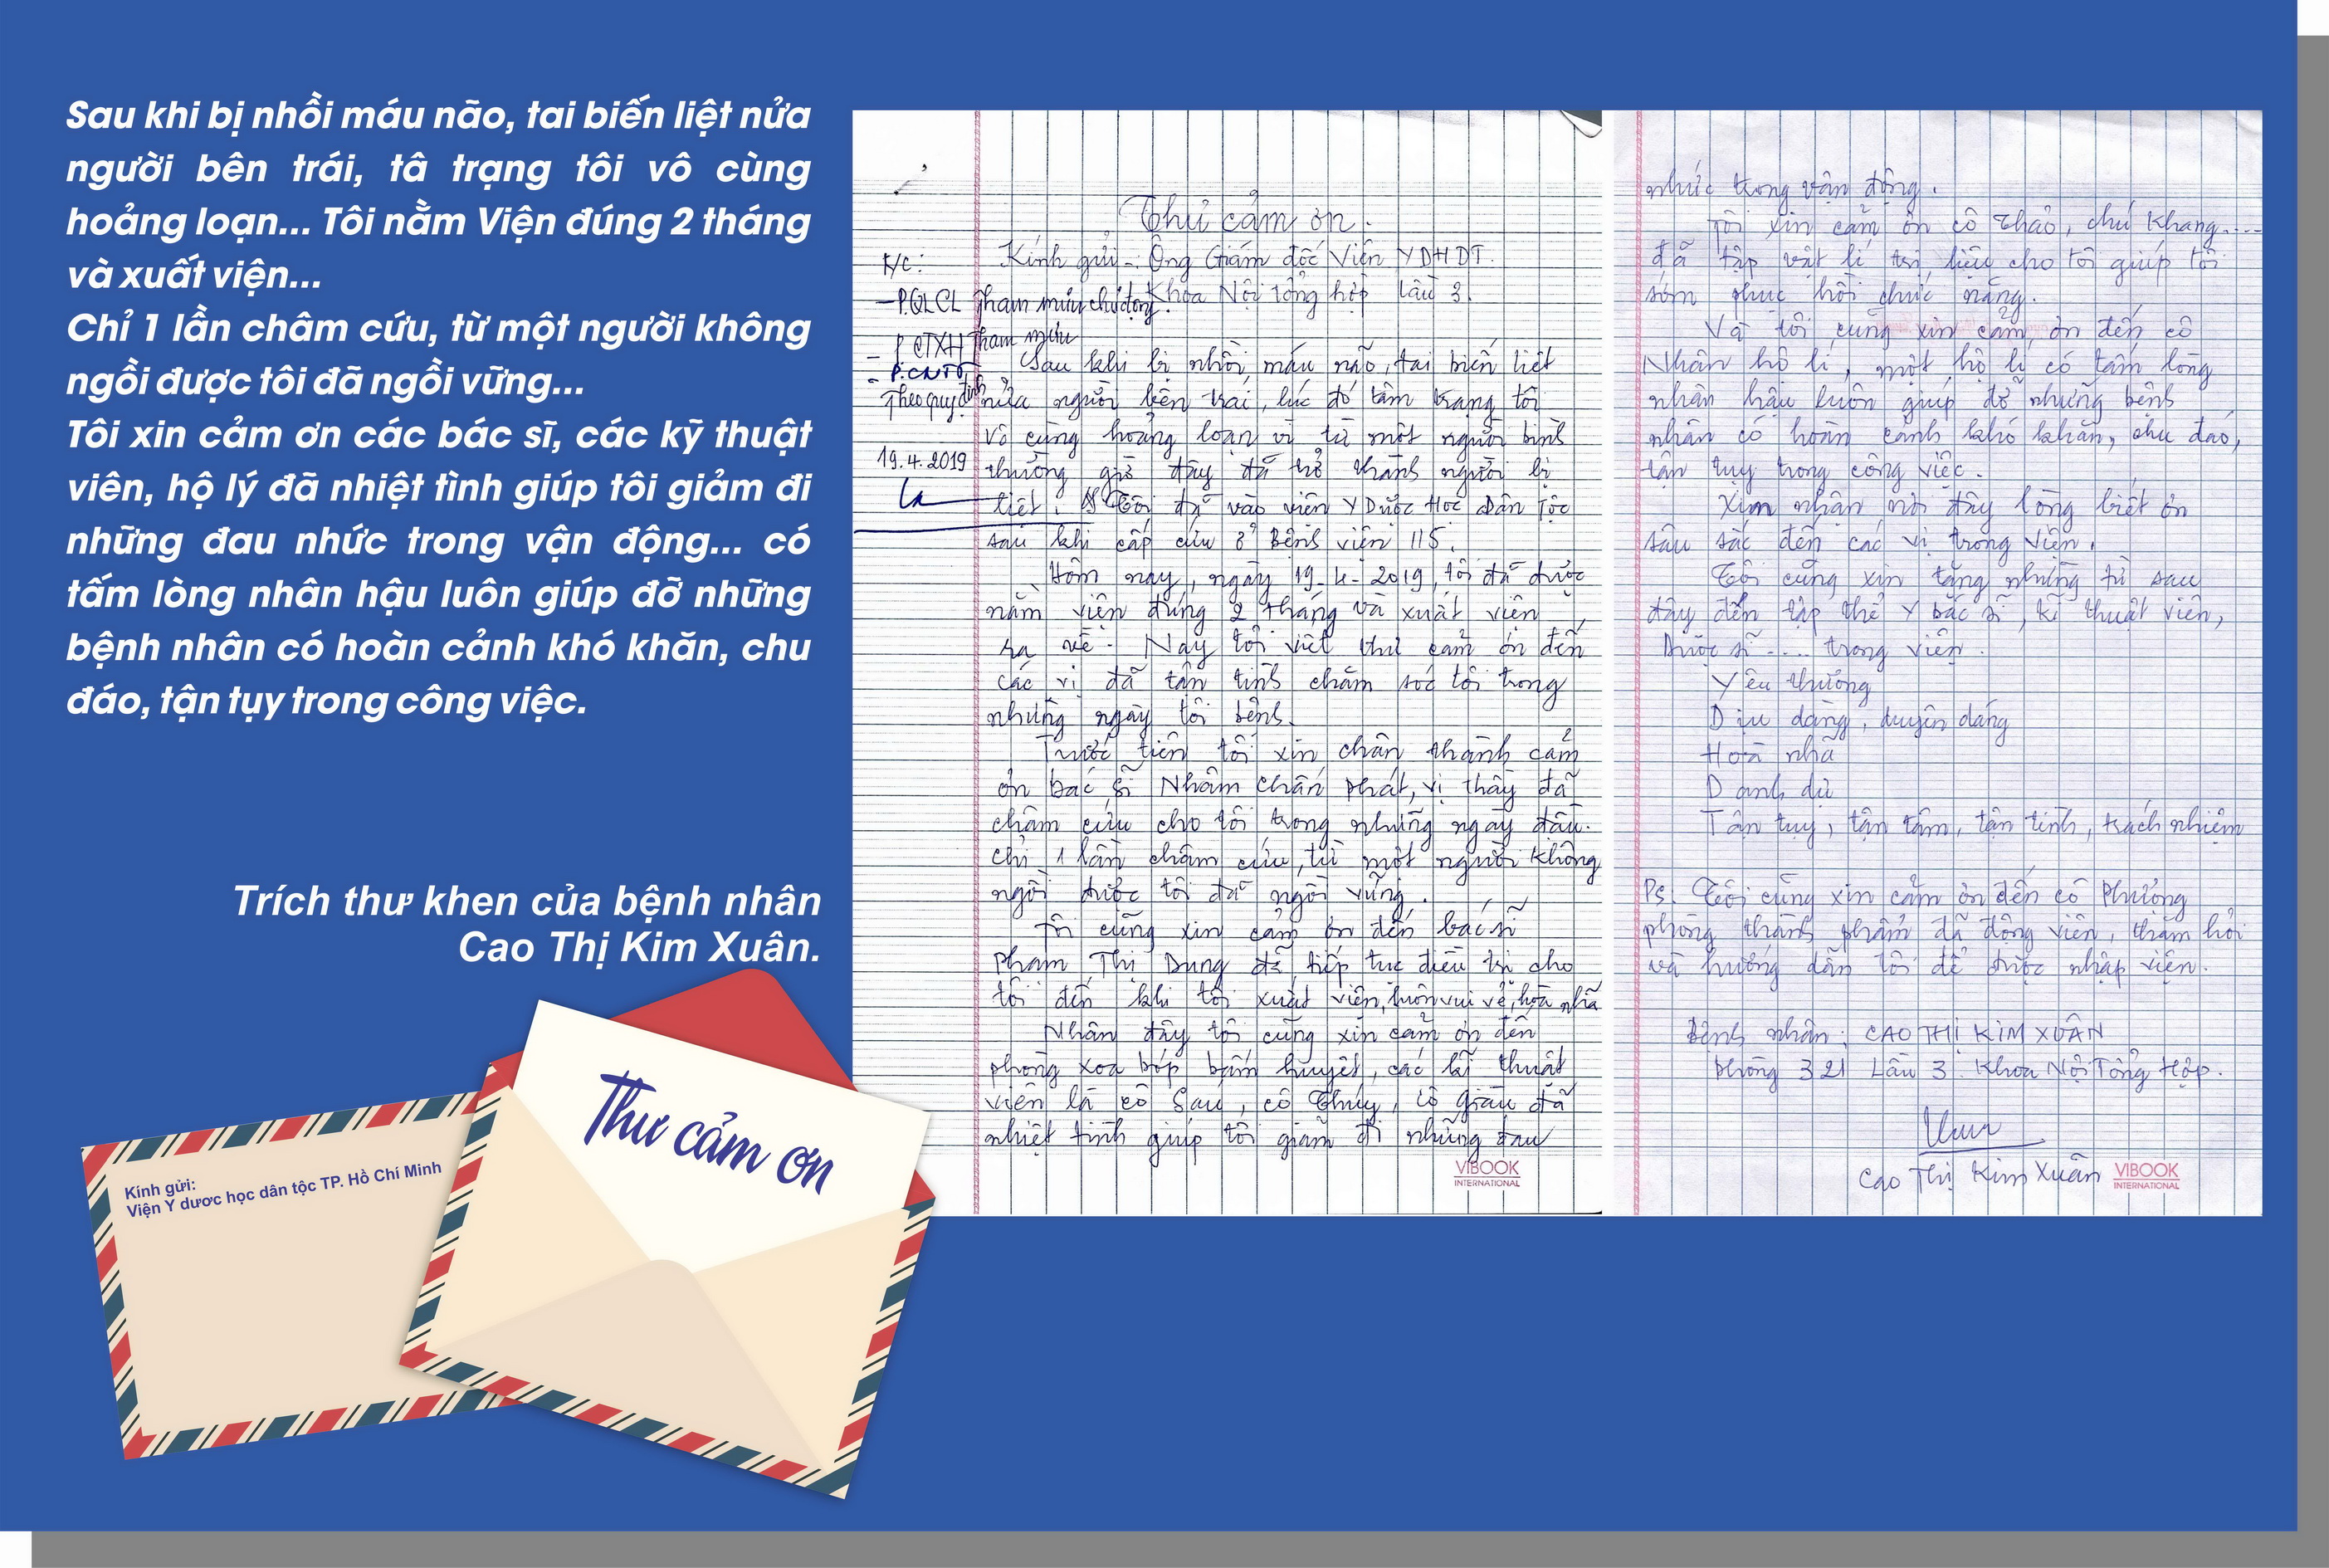 Sau khi bị nhồi máu não, tai biến liệt nửa
người bên trái, tâ trạng tôi vô cùng
hoảng loạn... Tôi nằm Viện đúng 2 tháng
và xuất viện...
Chỉ 1 lần châm cứu, từ một người không
ngồi được tôi đã ngồi vững...
Tôi xin cảm ơn các bác sĩ, các kỹ thuật
viên, hộ lý đã nhiệt tình giúp tôi giảm đi
những đau nhức trong vận động... có
tấm lòng nhân hậu luôn giúp đỡ những
bệnh nhân có hoàn cảnh khó khăn, chu
đáo, tận tụy trong công việc.
Trích thư khen của bệnh nhân
Cao Thị Kim Xuân.
Kính gửi:
Viện Y dươc học dân tộc TP. Hồ Chí Minh
Thư cảm ơn
Thư cảm ơn.
Kính gửi -: Ông Giám đốc Viện YDHDT.
Khoa Nội Tổng hợp Lầu 3.
K/c:
- P.QLCL Tham mưu
- P CTXH Tham mưu
- P.CNTT
Theo quy định
19.4.2019
Sau khi bị nhồi máu não, tai biến liệt
nửa người bên trái, lúc đó tâm trạng tôi
vô cùng hoảng loạn vì từ một người bình
thường giờ đây đã trở thành người bị
liệt. Tôi đã vào viện Y Dược Học Dân Tộc
sau khi cấp cứu ở Bệnh viện 115.
Hôm nay, ngày 19-4-2019, tôi đã được
nằm viện đúng 2 tháng và xuất viện
ra về. Nay tôi viết thư cảm ơn đến
các vị đã tận tình chăm sóc tôi trong
những ngày tôi bệnh.
Trước tiên tôi xin chân thành cảm
ơn bác sĩ Nhâm Chấn Phát, vị thầy đã
châm cứu cho tôi trong những ngày đầu.
chỉ 1 lần châm cứu, từ một người không
ngồi được tôi đã ngồi vững.
Tôi cũng xin cảm ơn đến bác sĩ
Phạm Thị Dung đã tiếp tục điều trị cho
tôi đến khi tôi xuất viện, luôn vui vẻ, hòa nhã
Nhân đây tôi cũng xin cảm ơn đến
phòng xoa bóp bấm huyệt, các kĩ thuật
viên là cô Sau, cô Thúy, cô giàu đã
nhiệt tình giúp tôi giảm đi những đau
VIBOOK
INTERNATIONAL
nhức trong vận động.
Tôi xin cảm ơn cô Thảo, chú Khang....
đã tập vật lí trị liệu cho tôi giúp tôi
sớm phục hồi chức năng.
Và tôi cũng xin cảm ơn đến cô
Nhân hộ lí, một hộ lí có tấm lòng
nhân hậu luôn giúp đỡ những bệnh
nhân có hoàn cảnh khó khăn, chu đáo,
tận tụy trong công việc.
Xin nhận nơi đây lòng biết ơn
sâu sắc đến các vị trong viện.
Tôi cũng xin tặng những từ sau
đây đến tập thể Y bác sĩ, kĩ thuật viên,
Dược sĩ .... trong viện.
Yêu thương
Dịu dàng, duyên dáng
Hoà nhã
Danh dự
Tận tụy, tận tâm, tận tình, trách nhiệm
Ps. Tôi cũng xin cảm ơn đến cô Phượng
phòng thành phẩm đã động viên, thăm hỏi
và hướng dẫn tôi để được nhập viện.
Bệnh nhân: CAO THỊ KIM XUÂN
Phòng 321 Lầu 3 Khoa Nội Tổng Hợp.
Cao Thị Kim Xuân
VIBOOK
INTERNATIONAL